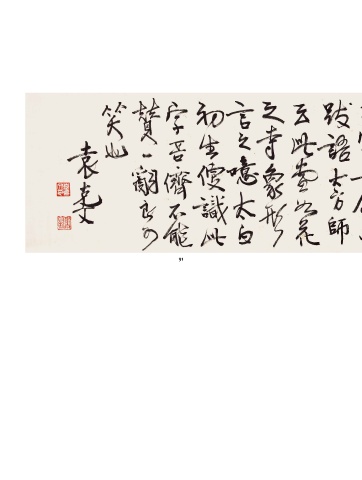 跋語大方師
云此畫如花
之寺象形
言之噫太白
初生便識此
字吾儕不能
贊一辭良可
笑也
袁克文